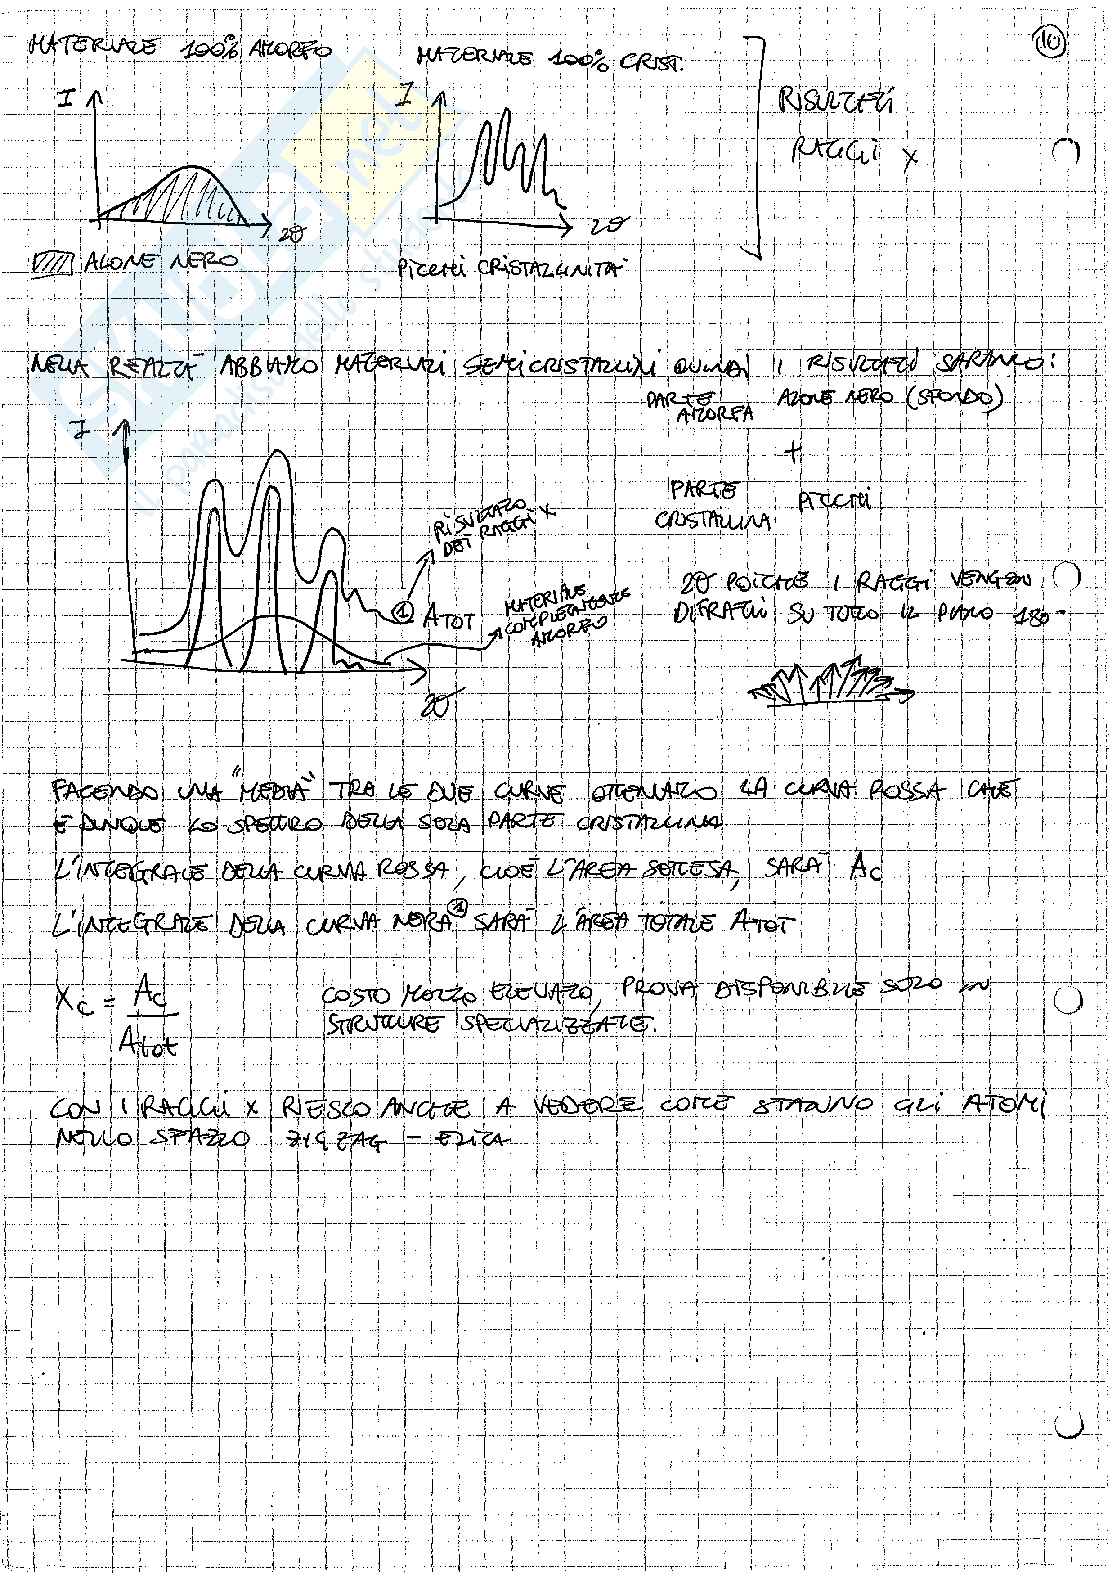 10
MATERIALE 100% AMORFO
MATERIALE 100% CRIST.
RISULTATI
RAGGI X
I
2θ
I
2θ
ALONE NERO
PICCHI CRISTALLINITA'
NELLA REALTA' ABBIAMO MATERIALI SEMICRISTALLINI QUINDI I RISULTATI SARANNO:
PARTE AMORFA ALONE NERO (SFONDO)
+
PARTE CRISTALLINA PICCHI
I
RISULTATO
DEI RAGGI X
1 ATOT
MATERIALE
COMPLETAMENTE
AMORFO
2θ
2θ POICHE I RAGGI VENGONO
DIFRATTI SU TUTTO IL PIANO 180°
FACENDO UNA "MEDIA" TRA LE DUE CURVE OTTENIAMO LA CURVA ROSSA CHE
E' DUNQUE LO SPETTRO DELLA SOLA PARTE CRISTALLINA
L'INTEGRALE DELLA CURVA ROSSA, CIOE' L'AREA SOTTESA, SARA' Ac
L'INTEGRALE DELLA CURVA NERA 1 SARA' L'AREA TOTALE ATOT
Xc = Ac
Atot
COSTO MOLTO ELEVATO, PROVA DISPONIBILE SOLO IN
STRUTTURE SPECIALIZZATE.
CON I RAGGI X RIESCO ANCHE A VEDERE COME STANNO GLI ATOMI
NELLO SPAZIO ZIGZAG - ELICA